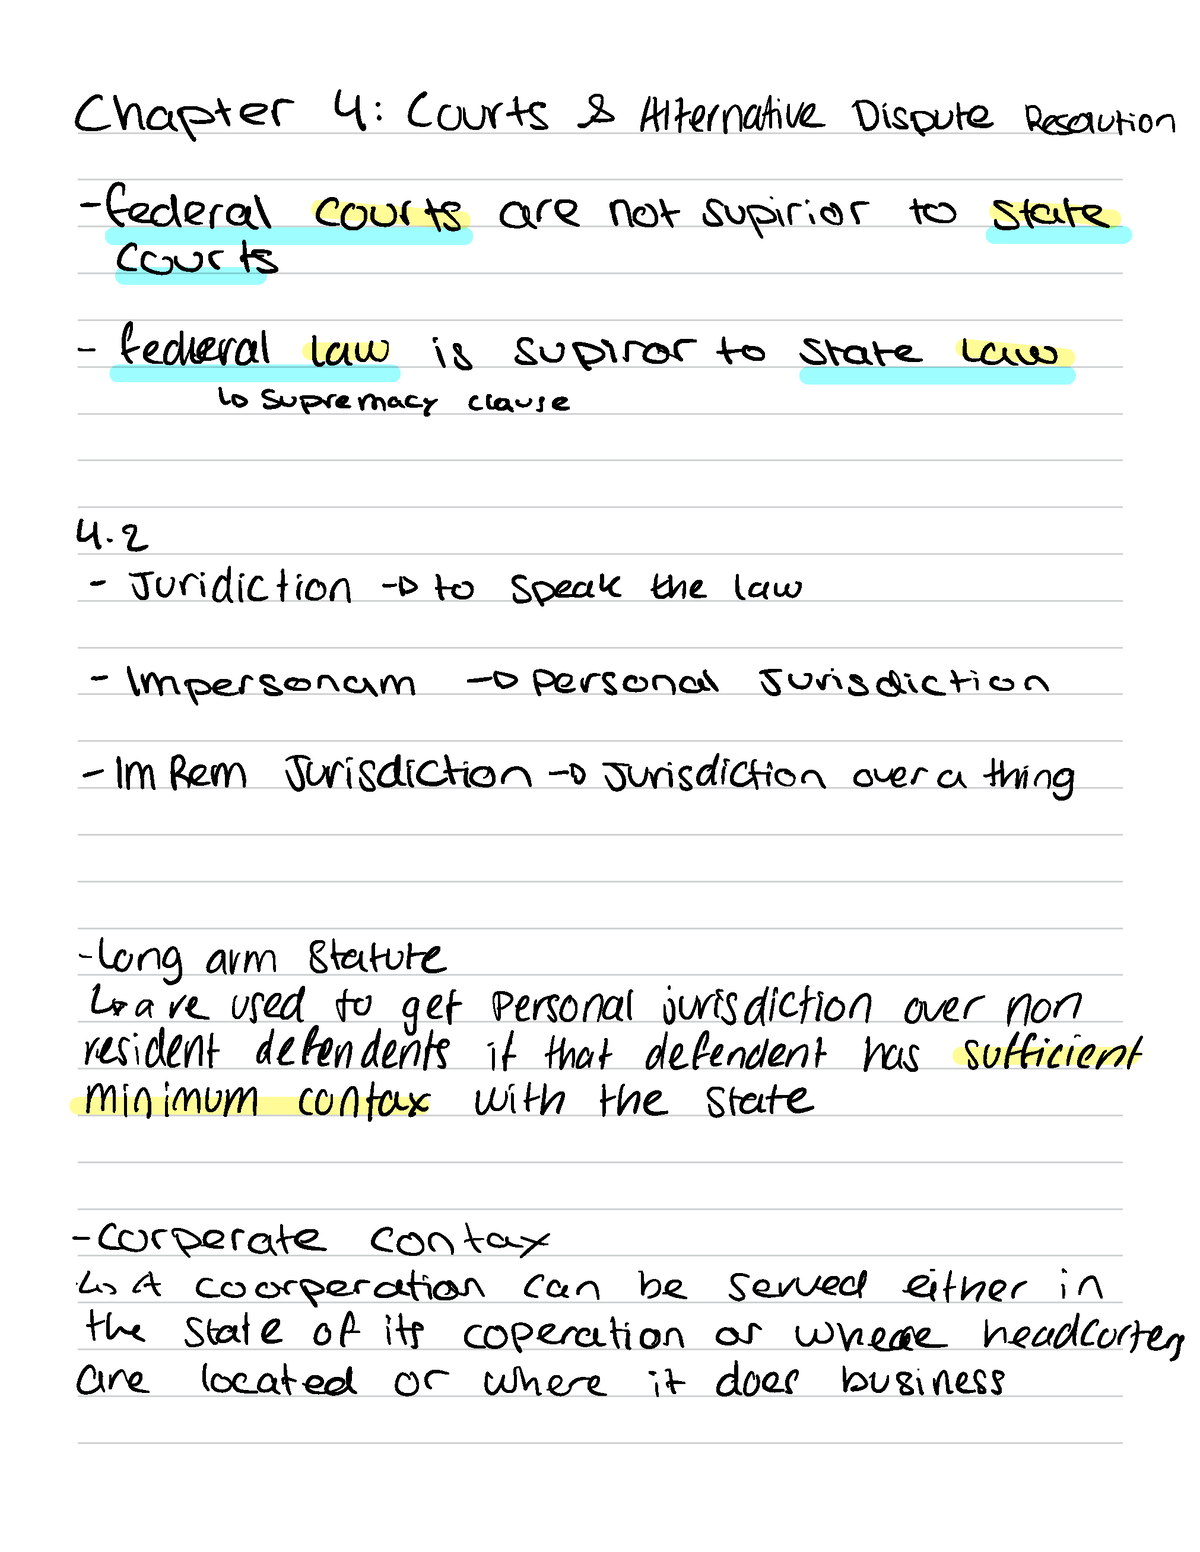 Chapter 4: Courts & Alternative Dispute Resaution
- federal courts are not supirior to state
courts
- federal law is supiror to state law
↳ supremacy clause
4.2
- Juridiction → to speak the law
- Impersonam → personal Jurisdiction
- Im Rem Jurisdiction → Jurisdiction over a thing
- Long arm statute
↳ are used to get personal jurisdiction over non
resident defendents if that defendent has sufficient
minimum contax with the state
- corperate contax
↳ A coorperation can be served either in
the state of its coperation or where headcurters
are located or where it does business